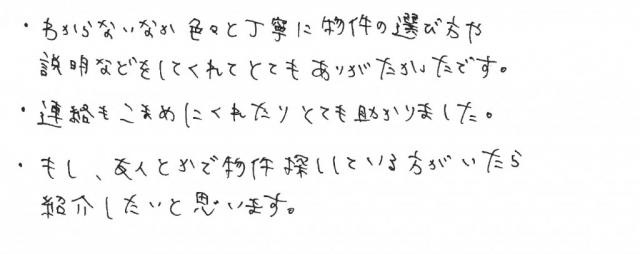 ・わからないなか色々と丁寧に物件の選び方や
説明などをしてくれてとてもありがたかったです。
・連絡もこまめにくれたりとても助かりました。
・もし、友人とかで物件探ししている方がいたら
紹介したいと思います。